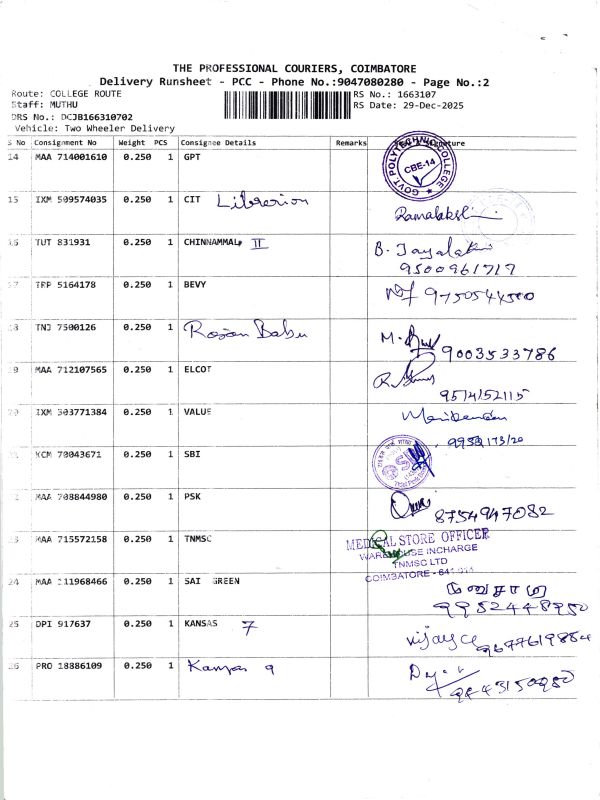 THE PROFESSIONAL COURIERS, COIMBATORE
Delivery Runsheet - PCC - Phone No.:9047080280 - Page No.:2
Route: COLLEGE ROUTE RS No.: 1663107
Staff: MUTHU RS Date: 29-Dec-2025
DRS No.: DCJB166310702
Vehicle: Two Wheeler Delivery
S No Consignment No Weight PCS Consignee Details Remarks Signature
14 MAA 714001610 0.250 1 GPT
GOVT POLYTECHNIC COLLEGE
CBE-14
15 IXM 509574035 0.250 1 CIT Librerion
16 TUT 831931 0.250 1 CHINNAMMAL II B.
9500961717
17 TRP 5164178 0.250 1 BEVY 9750544500
18 TNJ 7500126 0.250 1 Rajan Babu M.
9003533786
19 MAA 712107565 0.250 1 ELCOT R
9514152115
20 IXM 303771384 0.250 1 VALUE Manikandan
21 KCM 70043671 0.250 1 SBI
22 MAA 708844980 0.250 1 PSK 8754947082
23 MAA 715572158 0.250 1 TNMSC
MEDICAL STORE OFFICER
WAREHOUSE INCHARGE
TNMSC LTD
COIMBATORE
24 MAA 111968466 0.250 1 SAI GREEN
9952448950
25 DPI 917637 0.250 1 KANSAS 7
9677619884
26 PRO 18886109 0.250 1 9